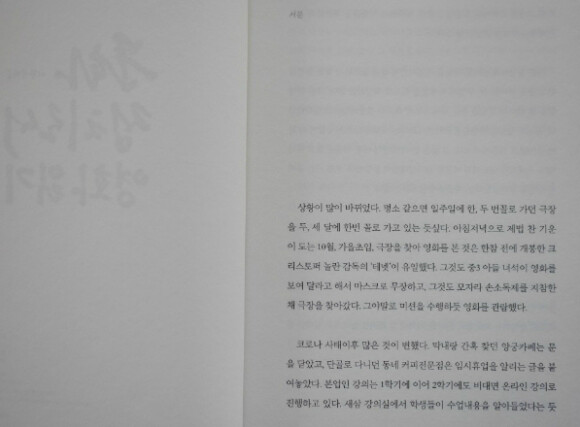 서문
상황이 많이 바뀌었다. 평소 같으면 일주일에 한, 두 번꼴로 가던 극장
을 두, 세 달에 한번 꼴로 가고 있는 듯싶다. 아침저녁으로 제법 찬 기운
이 도는 10월, 가을초입, 극장을 찾아 영화를 본 것은 한참 전에 개봉한 크
리스토퍼 놀란 감독의 '테넷'이 유일했다. 그것도 중3 아들 녀석이 영화를
보여 달라고 해서 마스크로 무장하고, 그것도 모자라 손소독제를 지참한
채 극장을 찾아갔다. 그야말로 미션을 수행하듯 영화를 관람했다.
코로나 사태이후 많은 것이 변했다. 막내랑 간혹 찾던 양궁카페는 문
을 닫았고, 단골로 다니던 동네 커피전문점은 임시휴업을 알리는 글을 붙
여놓았다. 본업인 강의는 1학기에 이어 2학기에도 비대면 온라인 강의로
진행하고 있다. 새삼 강의실에서 학생들이 수업내용을 알아들었다는 듯